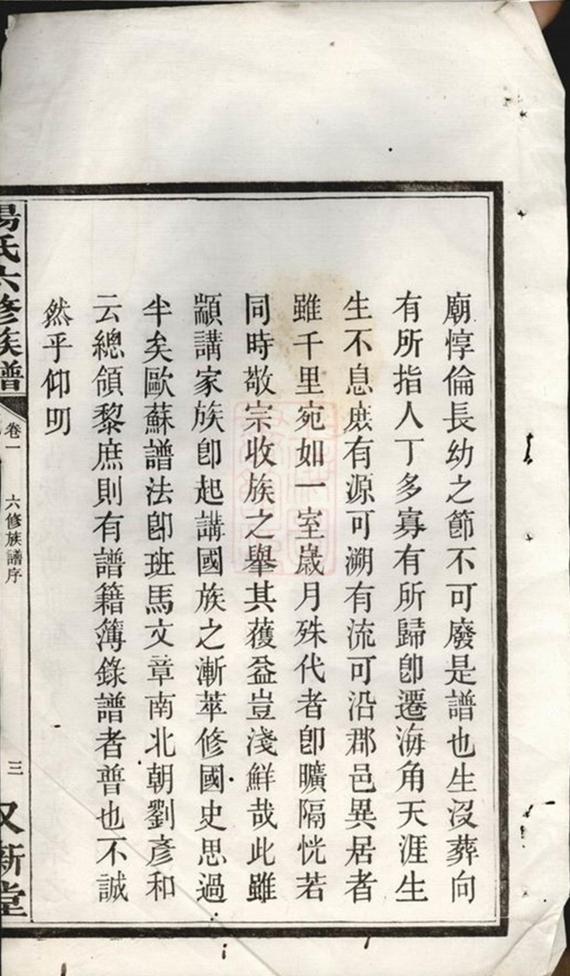 廟惇倫長幼之節不可廢是譜也生沒葬向
有所指人丁多寡有所歸卽遷海角天涯生
生不息庶有源可溯有流可沿郡邑異居者
雖千里宛如一室歲月殊代者卽曠隔恍若
同時敬宗收族之舉其蒦益豈淺鮮哉此雖
顓講家族卽起講國族之漸萃修國史思過
半矣歐蘇譜法卽班馬文章南北朝劉彥和
云總領黎庶則有譜籍簿錄譜者普也不誠
然乎仰明
楊氏六修族譜
卷一
六修族譜序
三
又新堂